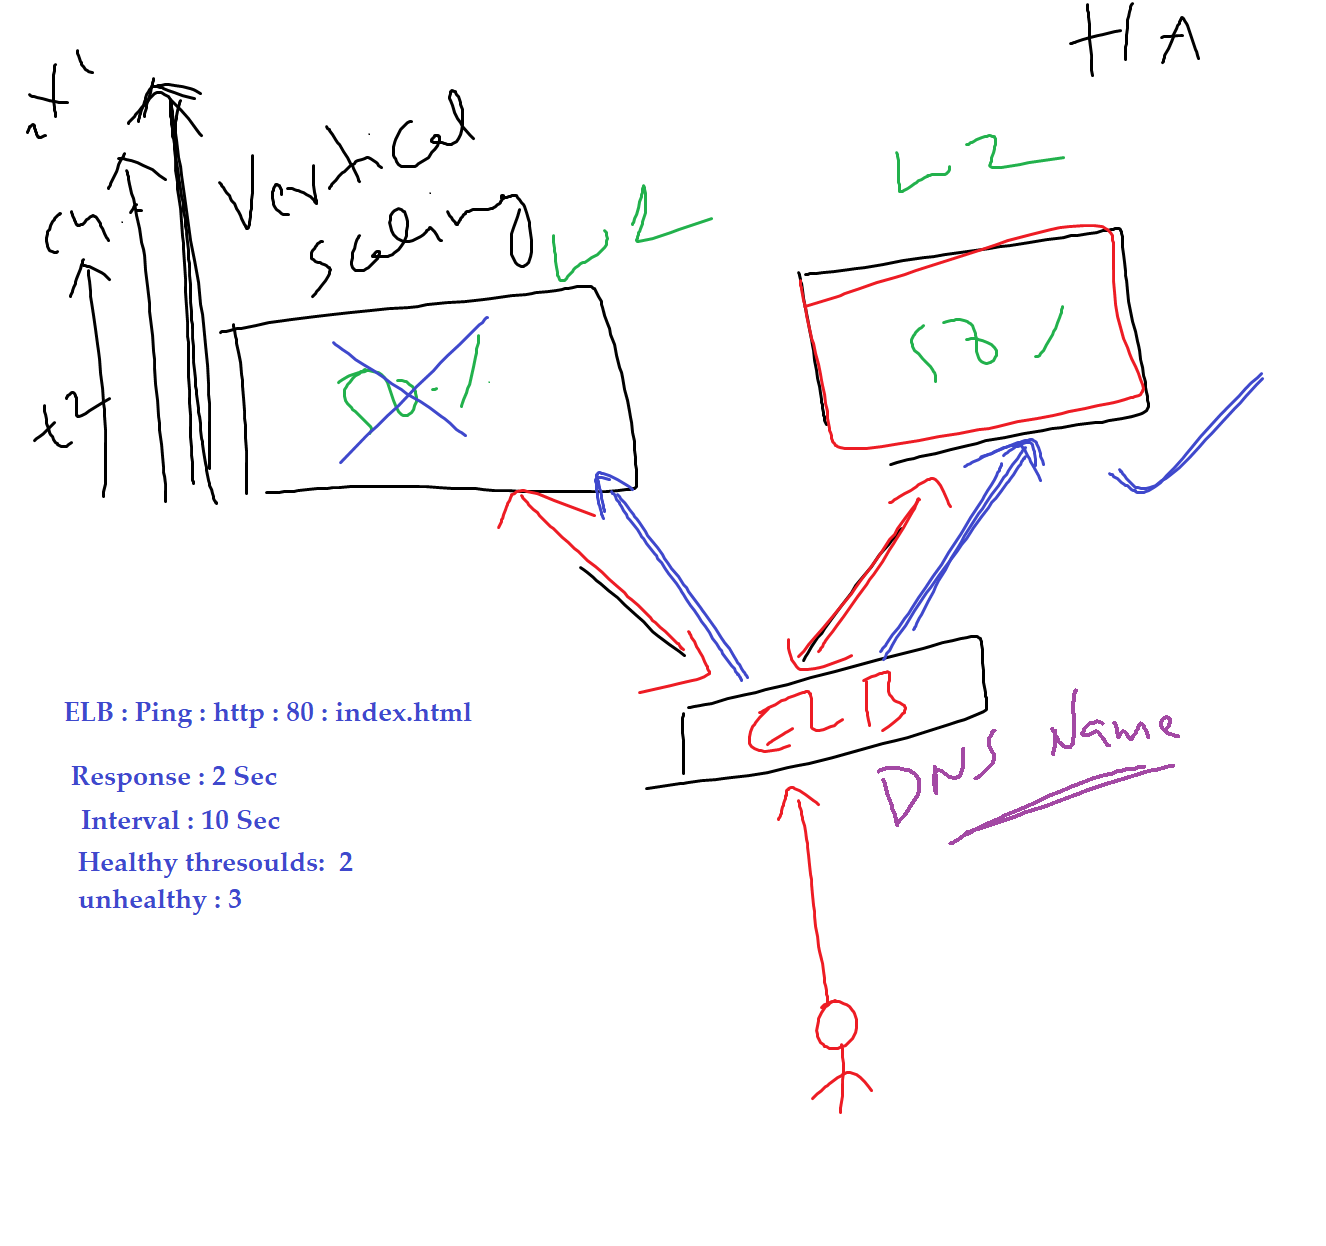 HA
Vertical
Scaling
t2
ELB
DNS Name
ELB : Ping : http : 80 : index.html
Response : 2 Sec
Interval : 10 Sec
Healthy thresoulds: 2
unhealthy : 3